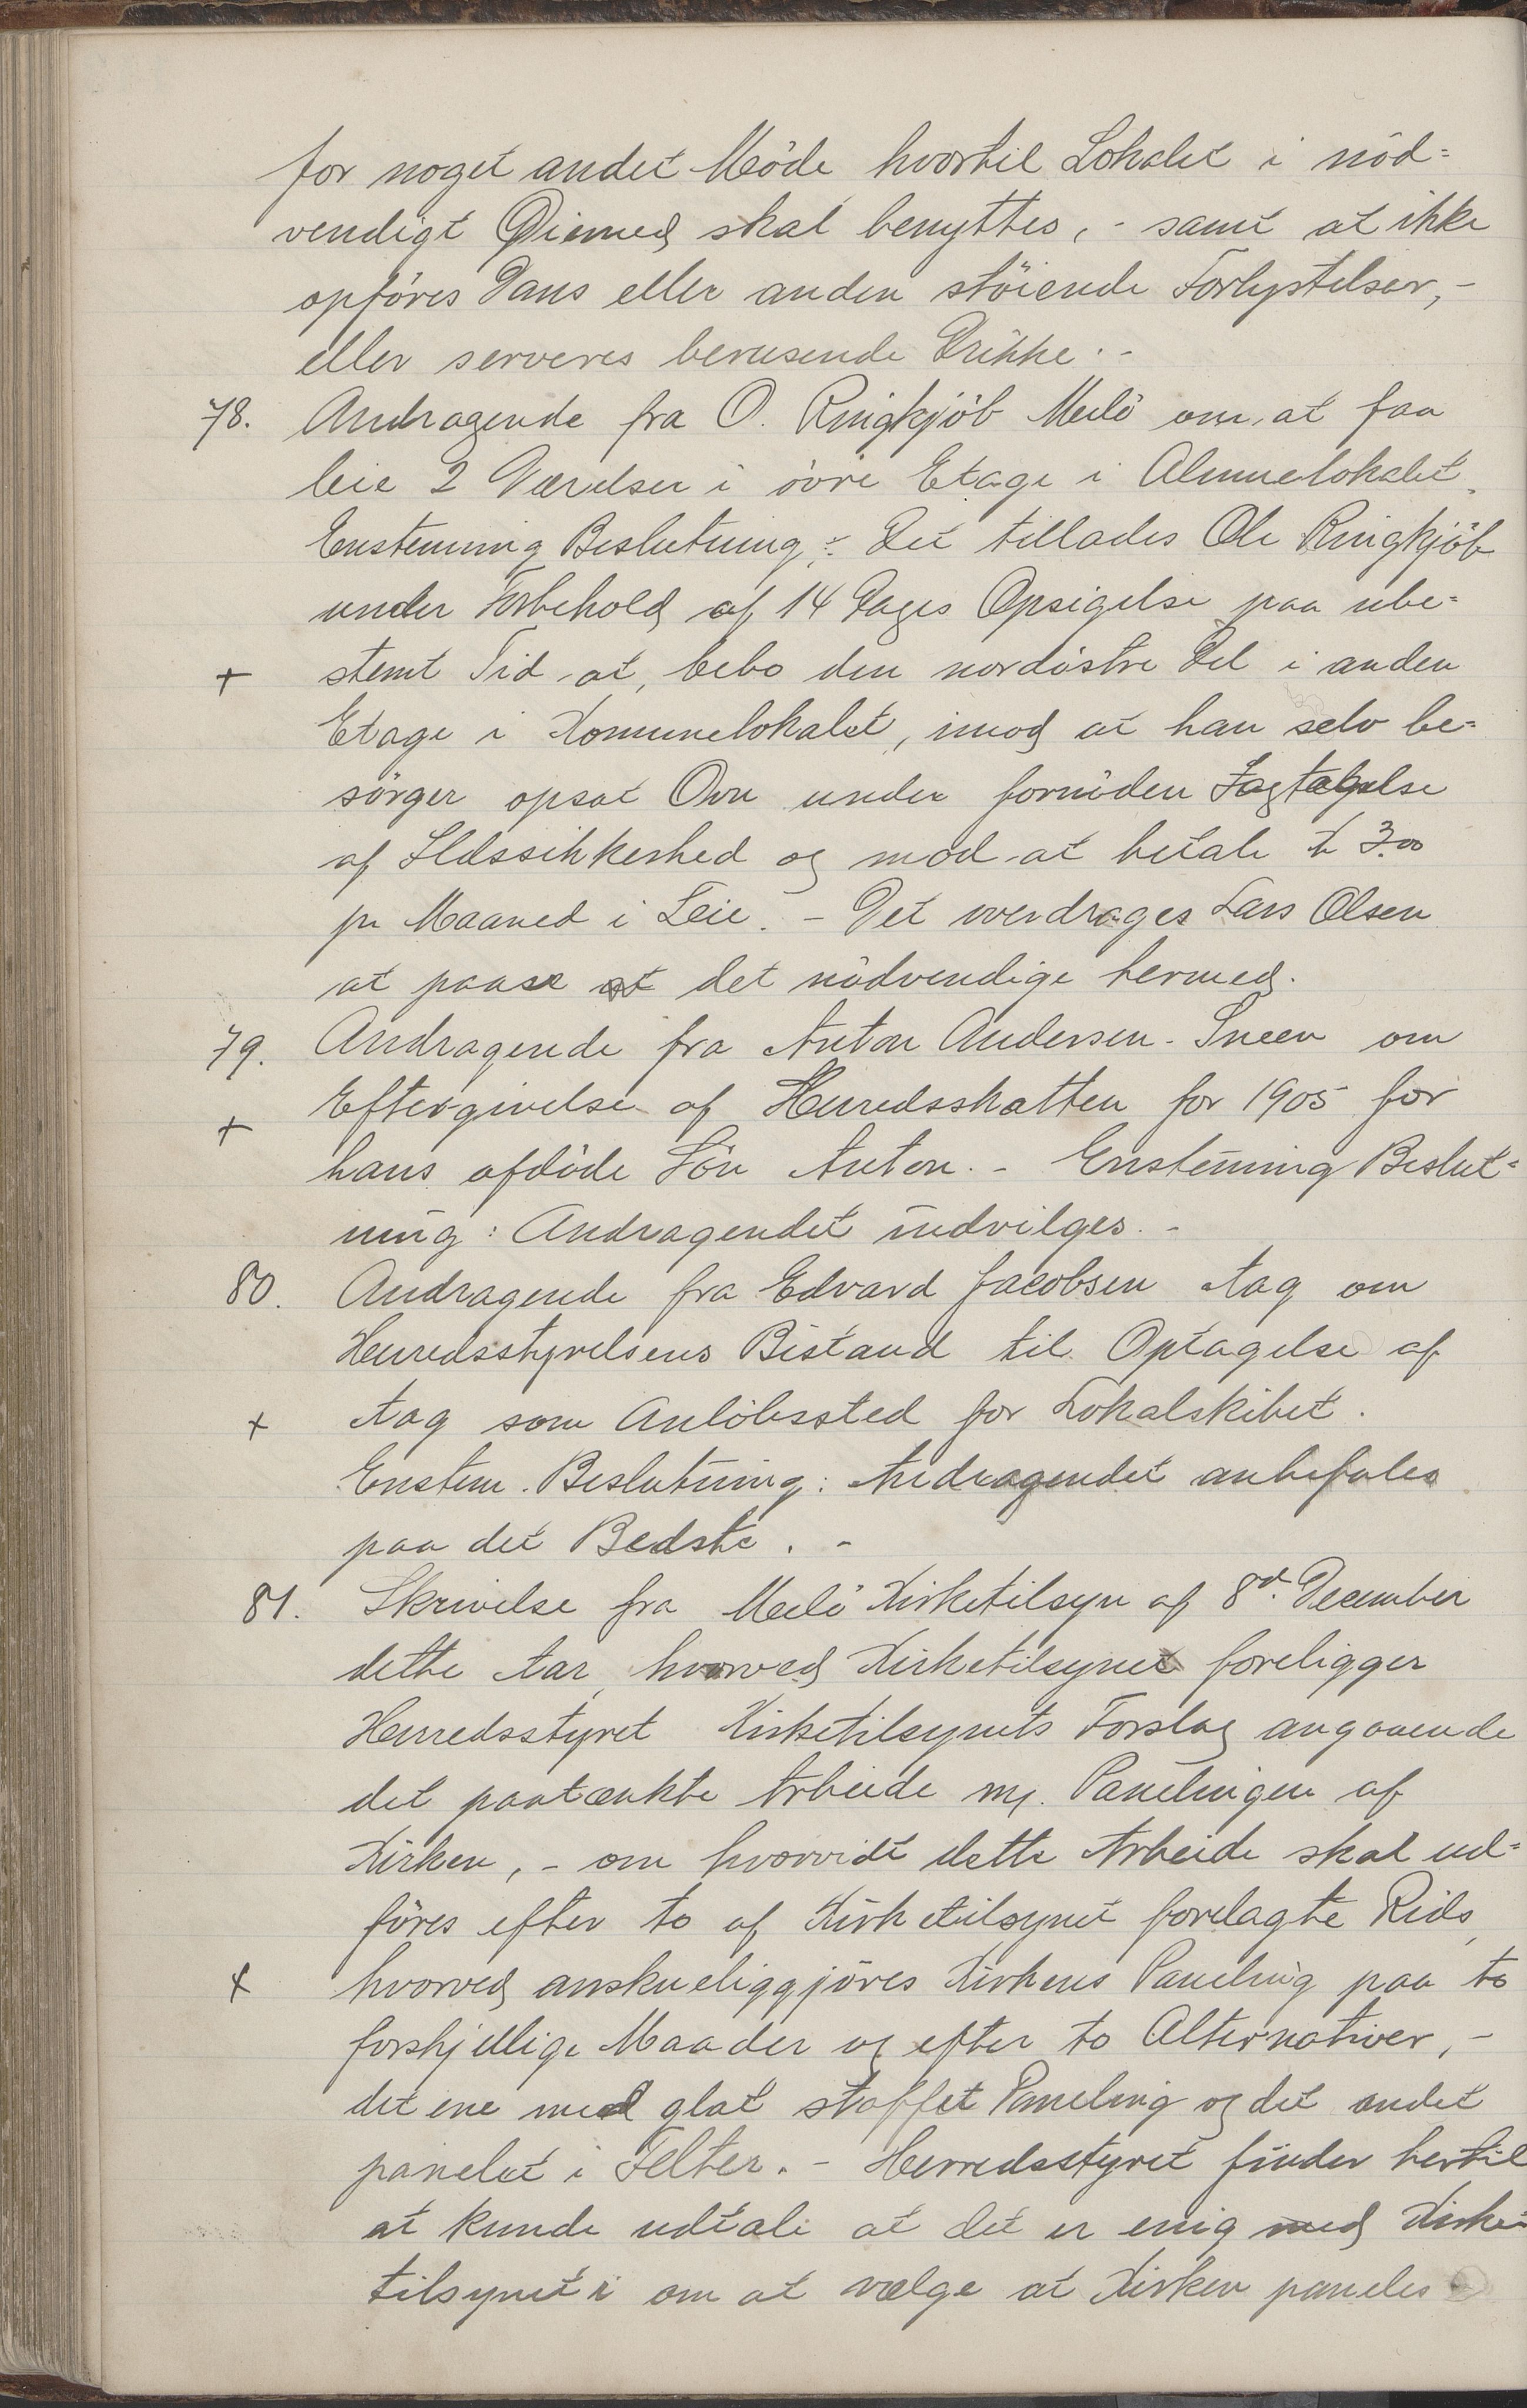 for noget andet Möde hvortil Lokalet i nöd=
vendigt Øiemed skal benyttes, - samt at ikke
opföres Dans eller anden stöiende Forlystelser, -
eller serveres berusende Drikke. -
78. Andragende fra O. Ringkjöb Melö om at faa
leie 2 Værelser i övre Etage i Almuelokalet.
Enstemmig Beslutning: Det tillades Ole Ringkjöb
under Forbehold af 14 Dages Opsigelse paa ube=
+ stemt Tid at, bebo den nordöstre Del i anden
Etage i Komunelokalet, imod at han selv be=
sörger opsat Ovn under fornöden Iagtagelse
af Ildssikkerhed og mod at betale k 3.00
pr Maaned i Leie. - Det overdrages Lars Olsen
at paase at det nödvendige hermed.
79. Andragende fra Anton Andersen - Sneen om
+ Eftergivelse af Herredsskatten for 1905 for
hans afdöde Sön Anton. - Enstemmig Beslut=
ning: Andragendet indvilges. -
80. Andragende fra Edvard Jacobsen Aag om
Herredsstyrelsens Bistand til Optagelse af
+ Aag som Anlöbssted for Lokalskibet.
Enstem. Beslutning: Andragendet anbefales
paa det Bedste. -
81. Skrivelse fra Melö Kirketilsyn af 8d December
dette Aar, hvorved Kirketilsynet foreligger
Herredsstyret Kirketilsynets Forslag angaaende
det paatænkte Arbeide m. Panelingen af
Kirken, - om hvorvidt dette Arbeide skal ud=
föres efter to af Kirketilsynet forelagte Rids,
+ hvorved anskueliggjöres Kirkens Paneling paa to
forskjellige Maader og efter to Alternativer, -
det ene med glat staffet Paneling og det andet
panelet i Felter. - Herredsstyret finder hertil
at kunde udtale at det er enig med Kirke=
tilsynet i om at vælge at Kirken paneles